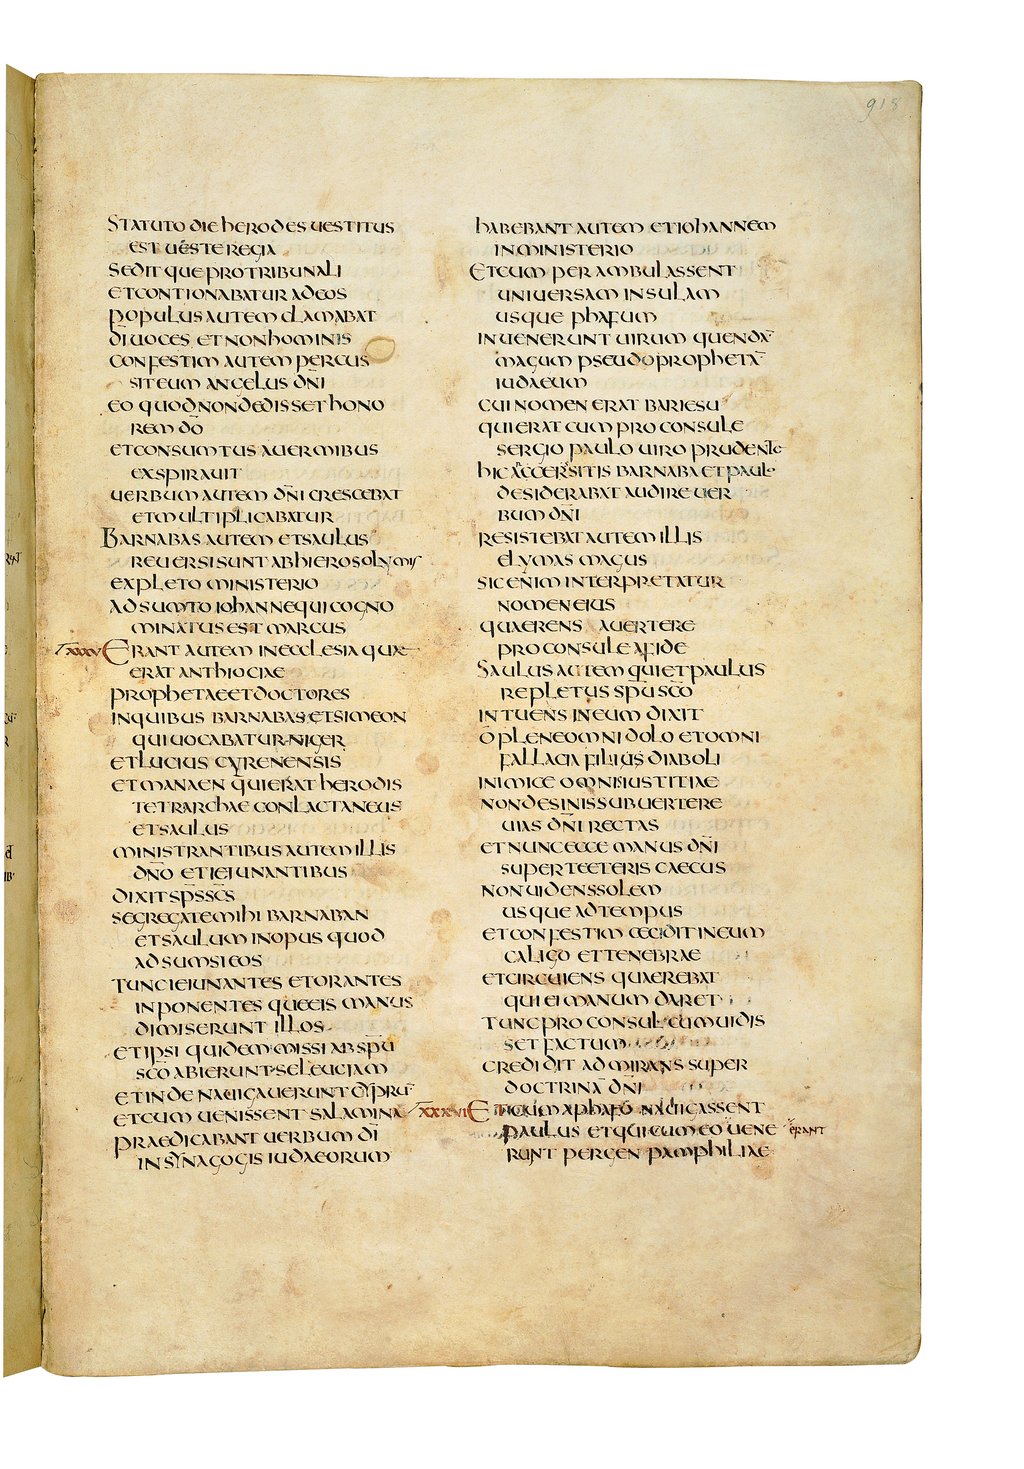 918
STATUTO DIE HERODES UESTITUS
EST UESTE REGIA
SEDITQUE PROTRIBUNALI
ETCONTIONABATUR ADEOS
POPULUS AUTEM CLAMABAT
DI UOCES ET NON HOMINIS
CONFESTIM AUTEM PERCUS
SIT EUM ANGELUS DNI
EO QUOD NON DEDISSET HONO
REM DO
ETCONSUMTUS AUERMIBUS
EXSPIRAUIT
UERBUM AUTEM DNI CRESCEBAT
ET MULTIPLICABATUR
BARNABAS AUTEM ET SAULUS
REUERSI SUNT ABHIEROSOLYMIS
EXPLETO MINISTERIO
ADSUMTO IOHANNE QUI COGNO
MINATUS EST MARCUS
XXXV ERANT AUTEM IN ECCLESIA QUAE
ERAT ANTHIOCIAE
PROPHETAE ET DOCTORES
INQUIBUS BARNABAS ET SIMEON
QUI UOCABATUR NIGER
ET LUCIUS CYRENENSIS
ET MANAEN QUIERAT HERODIS
TETRARCHAE CONLACTANEUS
ET SAULUS
MINISTRANTIBUS AUTEM ILLIS
DNO ET IEIUNANTIBUS
DIXIT SPS SCS
SEGREGATE MIHI BARNABAN
ET SAULUM IN OPUS QUOD
ADSUMSI EOS
TUNC IEIUNANTES ET ORANTES
INPONENTESQUE EIS MANUS
DIMISERUNT ILLOS
ET IPSI QUIDEM MISSI AB SPU
SCO ABIERUNT SELEUCIAM
ET INDE NAUIGAUERUNT CYPRU
ET CUM UENISSENT SALAMINA
PRAEDICABANT UERBUM DI
IN SYNAGOGIS IUDAEORUM
HABEBANT AUTEM ET IOHANNEM
IN MINISTERIO
ET CUM PERAMBULASSENT
UNIUERSAM INSULAM
USQUE PHAFUM
INUENERUNT UIRUM QUENDA
MAGUM PSEUDOPROPHETA
IUDAEUM
CUI NOMEN ERAT BARIESU
QUI ERAT CUM PROCONSULE
SERGIO PAULO UIRO PRUDENTE
HIC ACCERSITIS BARNABA ET PAULO
DESIDERABAT AUDIRE UER
BUM DNI
RESISTEBAT AUTEM ILLIS
ELYMAS MAGUS
SIC ENIM INTERPRETATUR
NOMEN EIUS
QUAERENS AUERTERE
PROCONSULE A FIDE
SAULUS AUTEM QUI ET PAULUS
REPLETUS SPU SCO
INTUENS IN EUM DIXIT
O PLENE OMNI DOLO ET OMNI
FALLACIA FILIUS DIABOLI
INIMICE OMNIS IUSTITIAE
NON DESINIS SUBUERTERE
UIAS DNI RECTAS
ET NUNC ECCE MANUS DNI
SUPER TE ET ERIS CAECUS
NON UIDENS SOLEM
USQUE AD TEMPUS
ET CONFESTIM CECIDIT IN EUM
CALIGO ET TENEBRAE
ET CIRCUIENS QUAEREBAT
QUI EI MANUM DARET
TUNC PROCONSUL CUM UIDIS
SET FACTUM
CREDIDIT ADMIRANS SUPER
DOCTRINA DNI
XXXVI ET CUM A PHAFO NAUIGASSENT
PAULUS ET QUI CUM EO UENE ERANT
RUNT PERGEN PAMPHILIAE